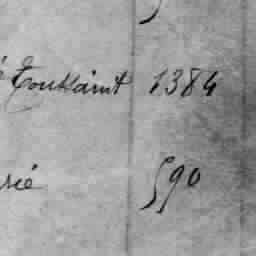 Toussaint 1384
rié 590